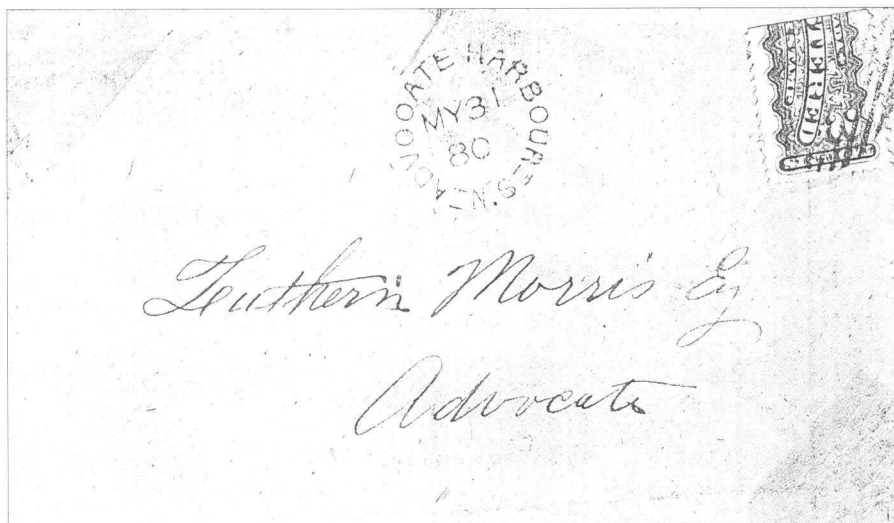 ADVOCATE HARBOUR_N.S_
MY 31
80
Leuthern Morris Esq
Advocate